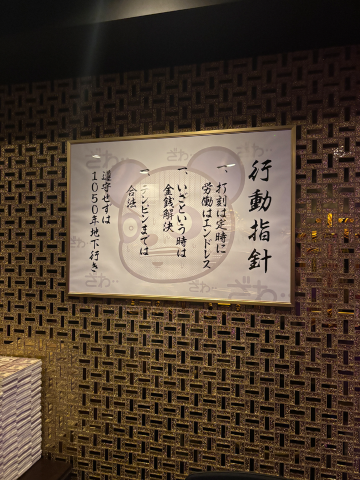 行動指針
一、打刻は定時に
労働はエンドレス
一、いざという時は
金銭解決
一、テンピンまでは
合法
遵守せずは
1050年地下行き
ざわ‥
ざわ‥
ざわ‥